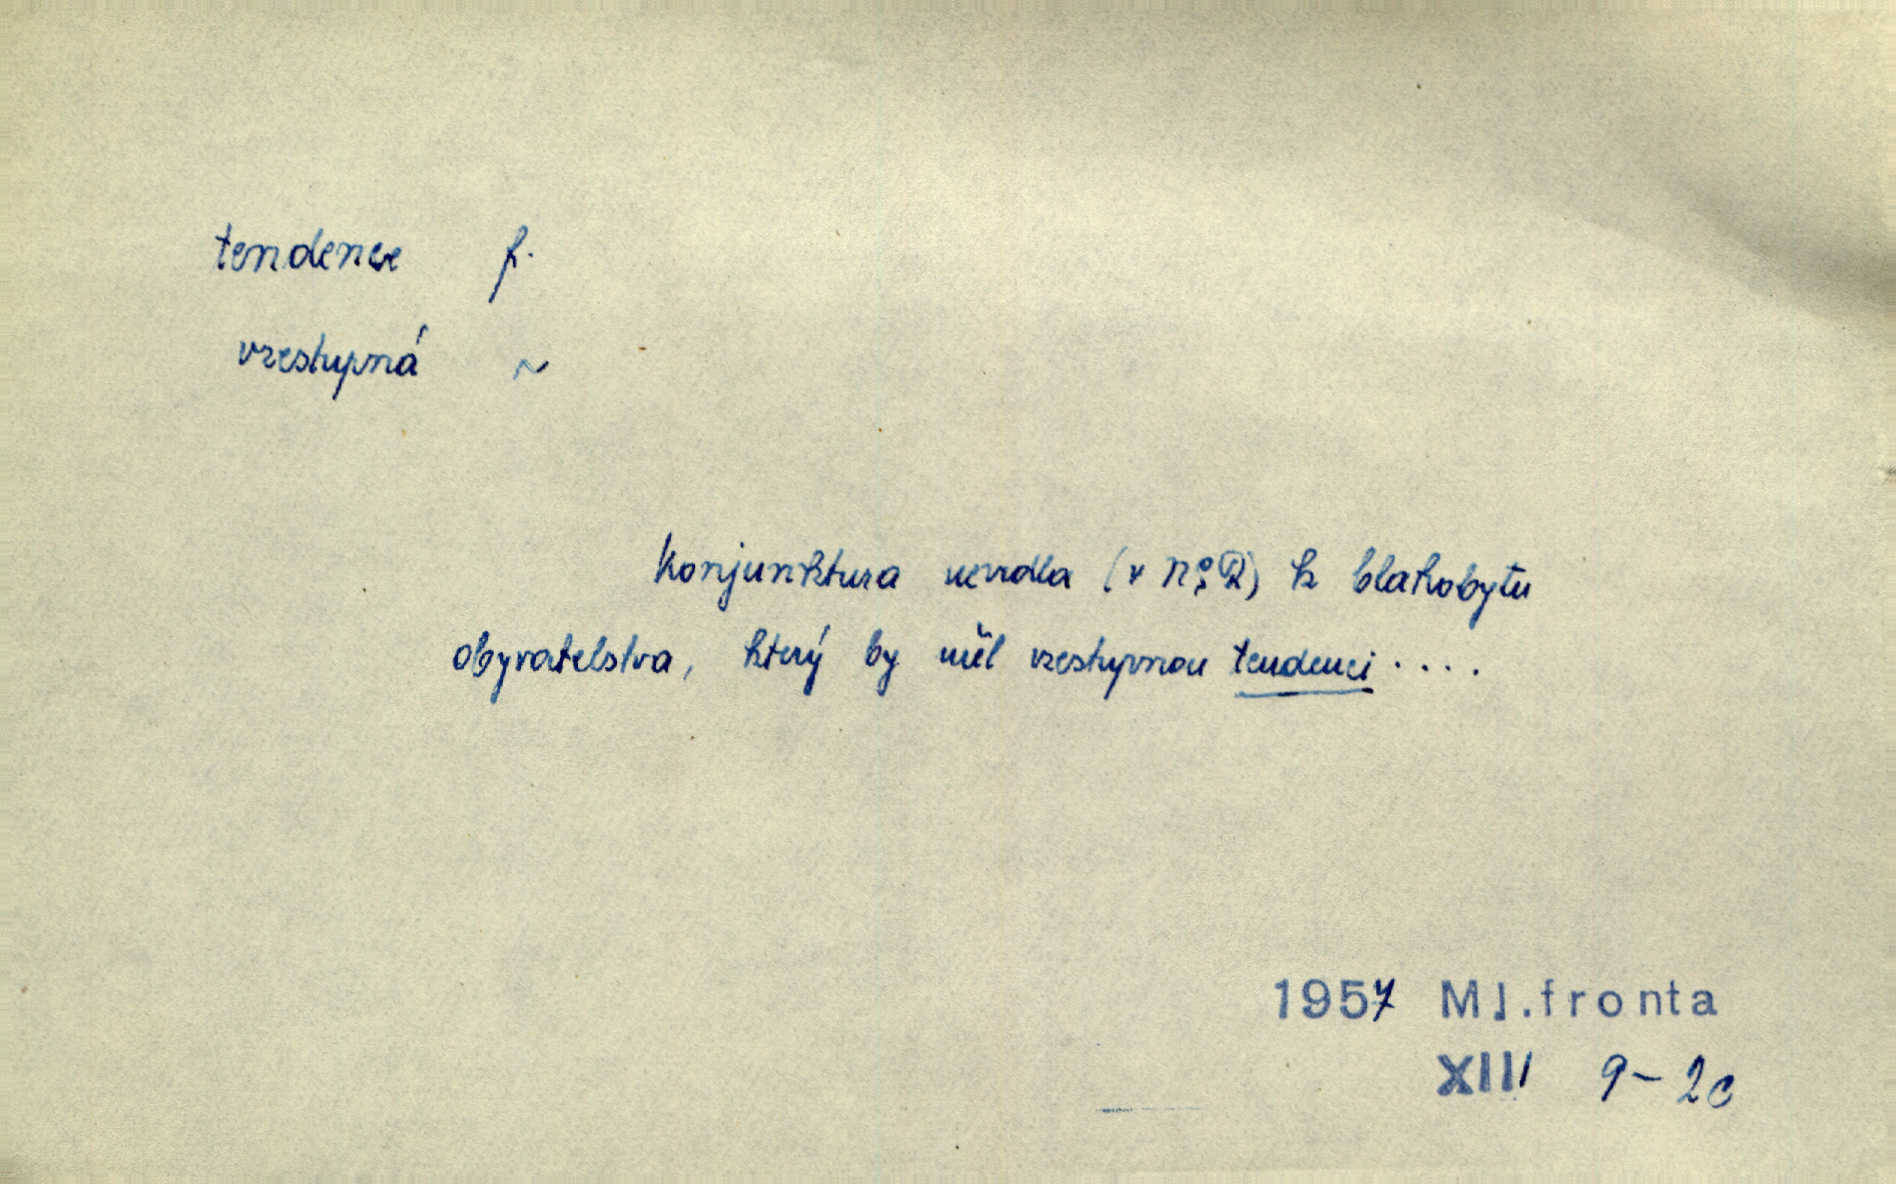 tendence f.
vzestupná ~
Konjunktura nevedla (v) k blahobytu
obyvatelstva, který by měl vzestupnou tendenci....
1957 Ml.fronta
XIII 9-2c